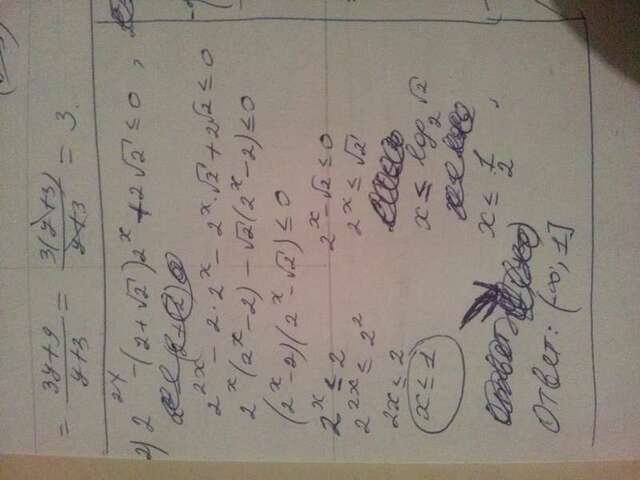 = 3y+9 / y+3 = 3(y+3) / y+3 = 3.
2) 2^2x - (2+√2)2^x + 2√2 ≤ 0,
2^2x - 2·2^x - 2^x·√2 + 2√2 ≤ 0
2^x(2^x-2) - √2(2^x-2) ≤ 0
(2^x-2)(2^x-√2) ≤ 0
2^x ≤ 2 2^x-√2 ≤ 0
2^2x ≤ 2^2 2^x ≤ √2
2x ≤ 2
x ≤ 1 x ≤ log2 √2
x ≤ 1/2,
Ответ: (-∞, 1]